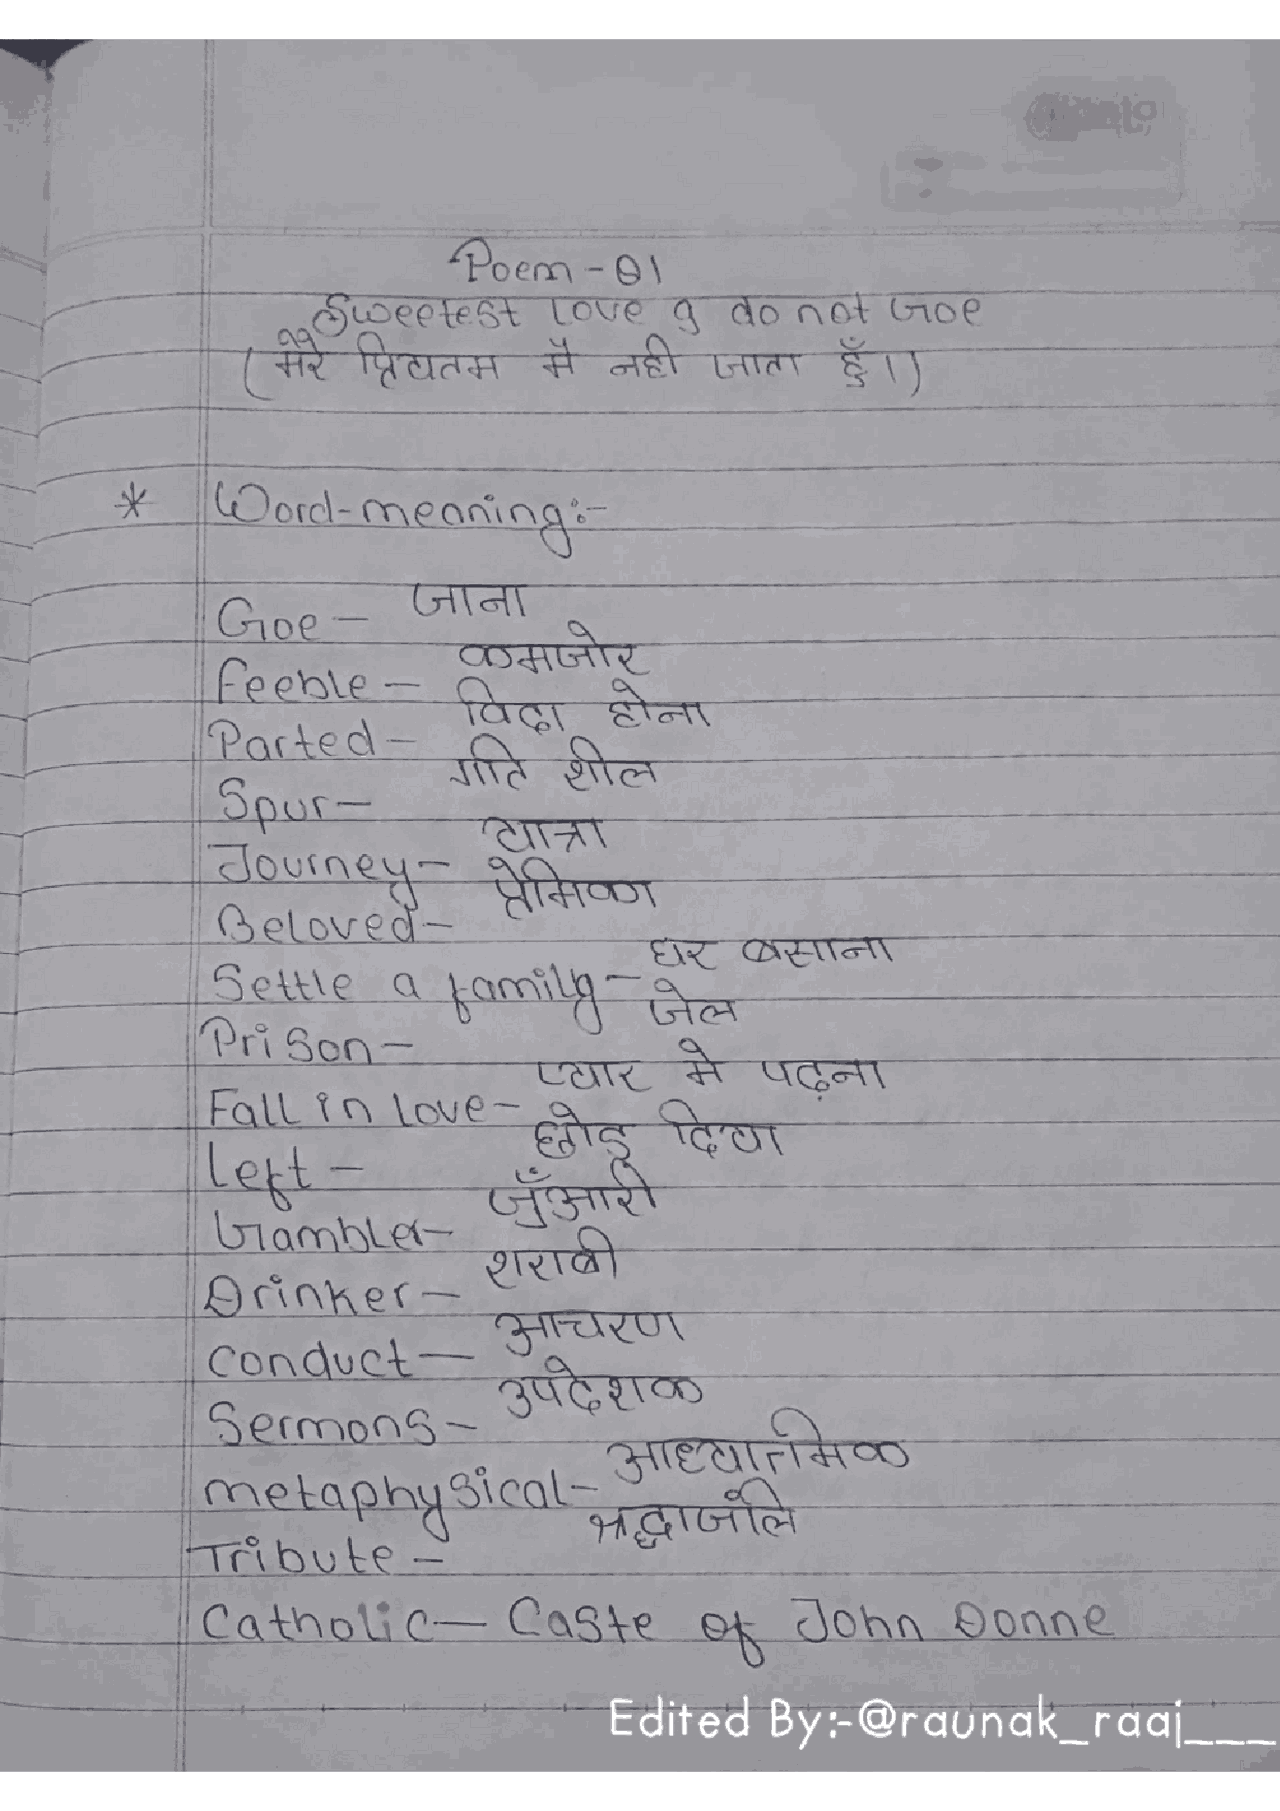 Poem - 01
Sweetest love I do not Goe
(मेरे प्रियतम मै नही जाता हुँ।)
* Word-meaning:-
Goe - जाना
Feeble - कमजोर
Parted - विदा होना
Spur - गति शील
Journey - यात्रा
Beloved - प्रेमिका
Settle a family - घर बसाना
Prison - जेल
Fall in love - प्यार मे पढ़ना
Left - छोड़ दिया
Gambler - जुँआरी
Drinker - शराबी
Conduct - आचरण
Sermons - उपदेशक
metaphysical - आध्यात्मिक
Tribute - श्रद्धाजंलि
Catholic - Caste of John Donne
Edited By:-@raunak_raaj___